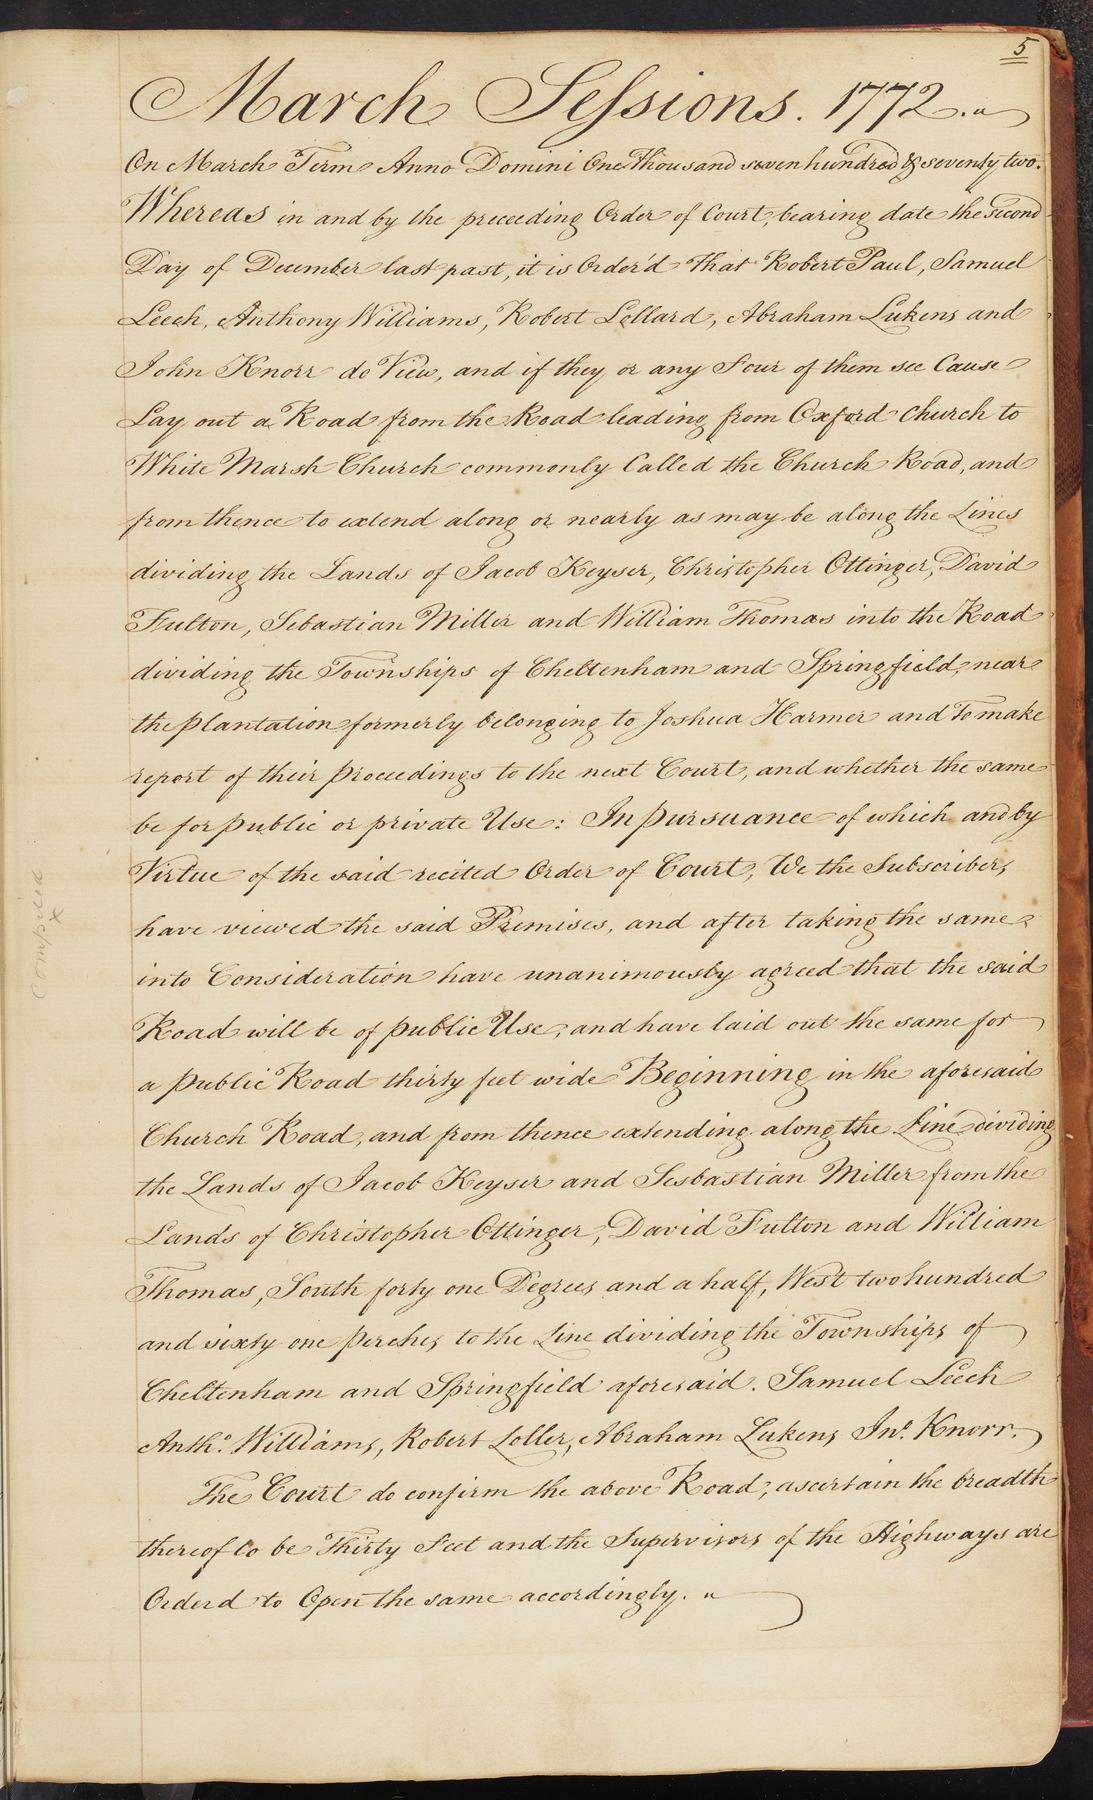 5
March Sessions. 1772.
On March Term Anno Domini One Thousand seven hundred & seventy two.
Whereas in and by the preceeding Order of Court, bearing date the second
Day of December last past, it is Order'd that Robert Paul, Samuel
Leech, Anthony Williams, Robert Lollard, Abraham Lukens and
John Knorr do View, and if they or any Four of them see Cause
Lay out a Road from the Road leading from Oxford Church to
White Marsh Church commonly Called the Church Road, and
from thence to extend along or nearly as may be along the Lines
dividing the Lands of Jacob Keyser, Christopher Ottinger, David
Fulton, Sebastian Miller and William Thomas into the Road
dividing the Townships of Cheltenham and Springfield, near
the plantation formerly belonging to Joshua Harmer and To make
report of their proceedings to the next Court, and whether the same
be for public or private Use: In pursuance of which and by
Virtue of the said recited Order of Court, We the Subscribers
have viewed the said Premises, and after taking the same
into Consideration have unanimously agreed that the said
Road will be of public Use, and have laid out the same for
a public Road thirty feet wide Beginning in the aforesaid
Church Road, and from thence extending along the Line dividing
the Lands of Jacob Keyser and Sesbastian Miller from the
Lands of Christopher Ottinger, David Fulton and William
Thomas, South forty one Degrees and a half, West two hundred
and sixty one perches to the Line dividing the Townships of
Cheltenham and Springfield aforesaid. Samuel Leech
Antho. Williams, Robert Loller, Abraham Lukens Jno. Knorr.
The Court do confirm the above Road, ascertain the breadth
thereof to be Thirty Feet and the Supervisors of the Highways are
Orderd to Open the same accordingly.
Compiled
x